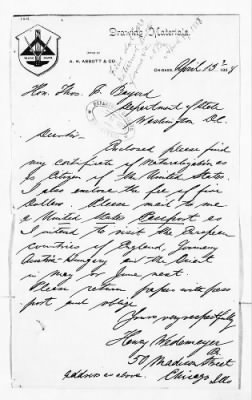 Drawing Materials.
OFFICE OF
A. H. ABBOTT & CO.
CHICAGO, April 13th 188
Hon. Thos. F. Bayard
Department of State
Washington D.C.
Dear Sir:
Enclosed please find
my certificate of Naturalization as
a Citizen of the United States.
I also enclose the fee of five
Dollars. Please mail to me
a United States Passport as
I intend to visit the European
countries of England, Germany
Austria-Hungary and the Orient
in may or June next.
Please return papers with pass
port and oblige
Yours very respectfully
Henry Wedemeyer
50 Madison Street
address as above. Chicago Ills